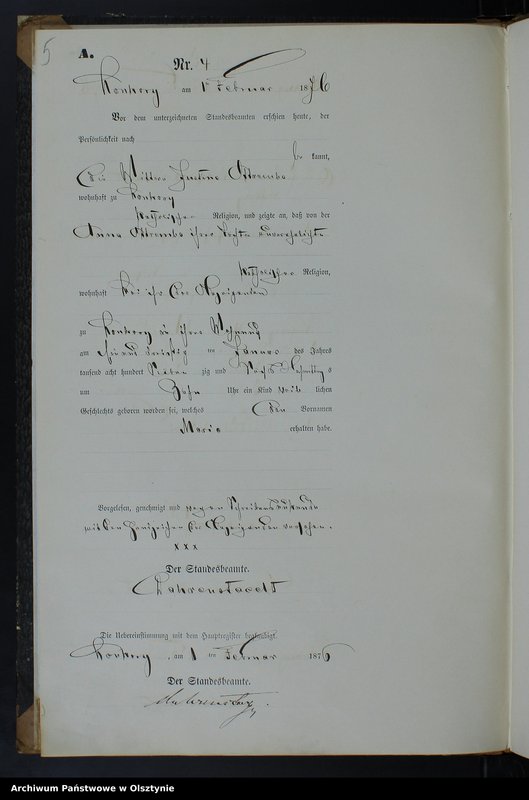 5
A.
Nr. 4
am 1 Februar 1876
Vor dem unterzeichneten Standesbeamten erschien heute, der
Persönlichkeit nach
be kannt,
Die Wittwe Justine
wohnhaft zu
Katholischer Religion, und zeigte an, daß von der
Anna ihrer Tochter unverehelichte
Katholischer Religion,
wohnhaft bei ihr der Anzeigenden
zu in ihrer Wohnung
am ein und dreißig ten Januar des Jahres
tausend acht hundert Sieben zig und Sechs
um Zehn Uhr ein Kind weib lichen
Geschlechts geboren worden sei, welches den Vornamen
Maria erhalten habe.
Vorgelesen, genehmigt und wegen
mit den Handzeichen der Anzeigenden versehen.
x x x
Der Standesbeamte.
Die Uebereinstimmung mit dem Hauptregister beglaubigt.
, am 1 ten Februar 1876
Der Standesbeamte.
Archiwum Państwowe w Olsztynie